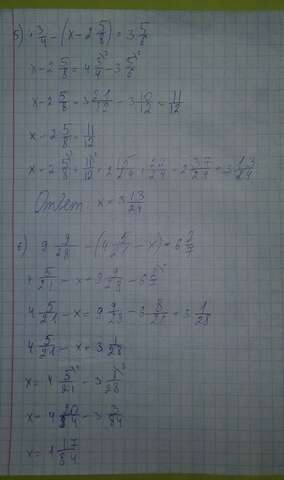 б) 3/4 - (x - 2 5/8) = 3 5/6
x - 2 5/8 = 4 3/4 - 3 5/6
x - 2 5/8 = 3 21/12 - 3 10/12 = 11/12
x - 2 5/8 = 11/12
x = 2 5/8 + 11/12 = 2 15/24 + 22/24 = 2 37/24 = 3 13/24
Ответ x = 3 13/24
в) 9 9/28 - (4 5/21 - x) = 6 2/7
4 5/21 - x = 9 9/28 - 6 2/7
4 5/21 - x = 9 9/28 - 6 8/28 = 3 1/28
4 5/21 - x = 3 1/28
x = 4 5/21 - 3 1/28
x = 4 20/84 - 3 3/84
x = 1 17/84